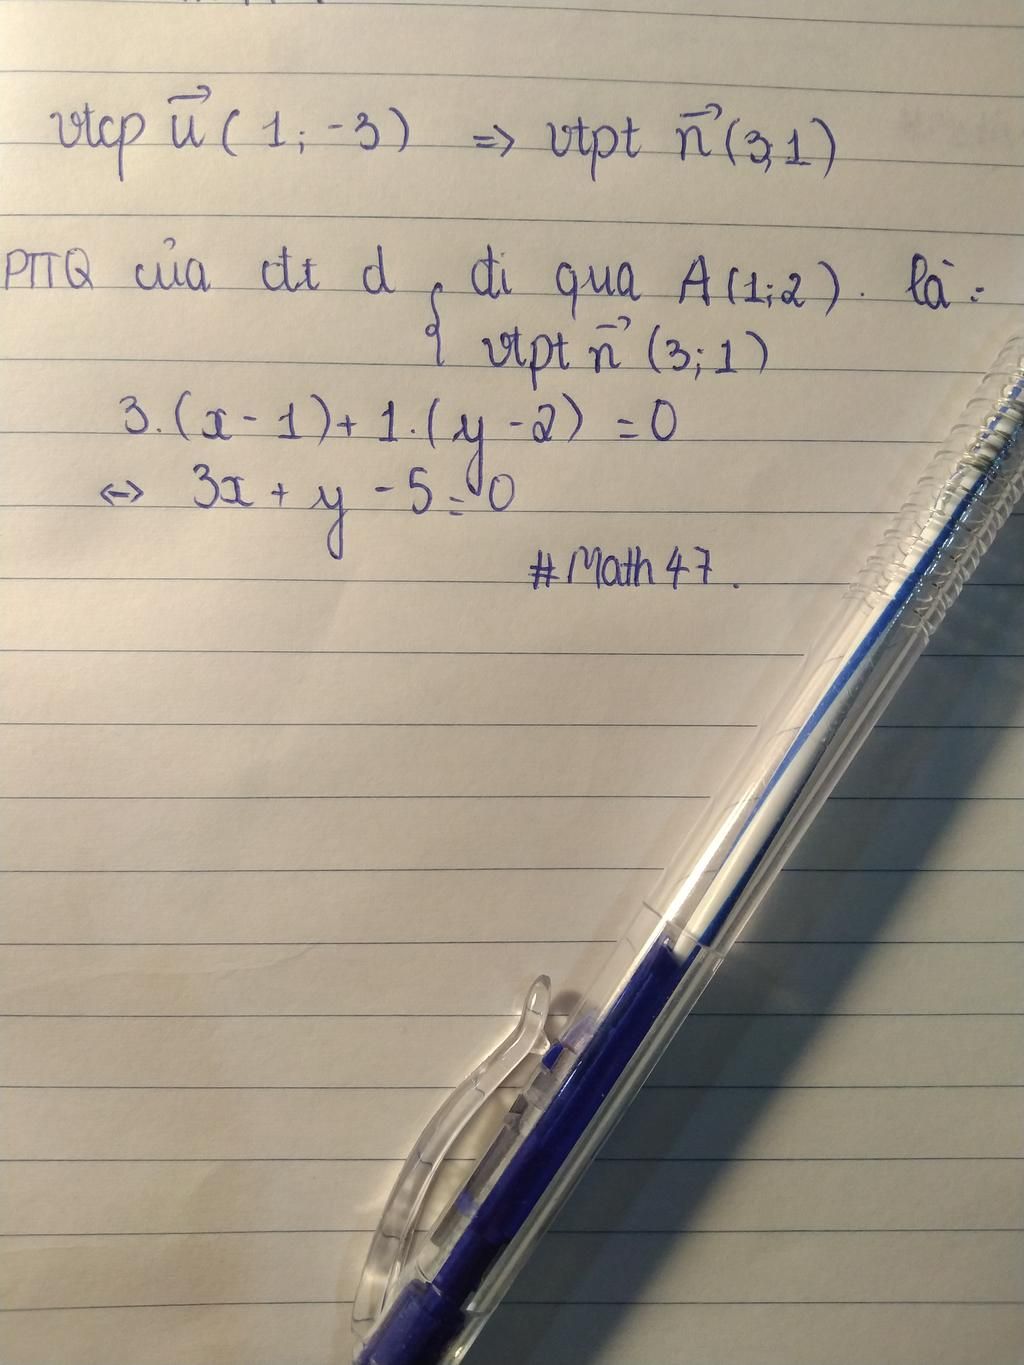 vtcp u⃗ (1; -3) => vtpt n⃗ (3;1)
PTTQ của đt d { đi qua A(1;2). là:
vtpt n⃗ (3;1)
3.(x - 1) + 1.(y - 2) = 0
<-> 3x + y - 5 = 0
#Math 47.